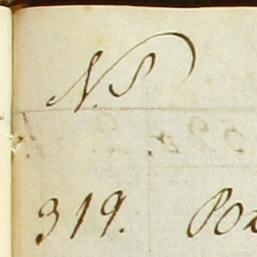 N. S
319. Po